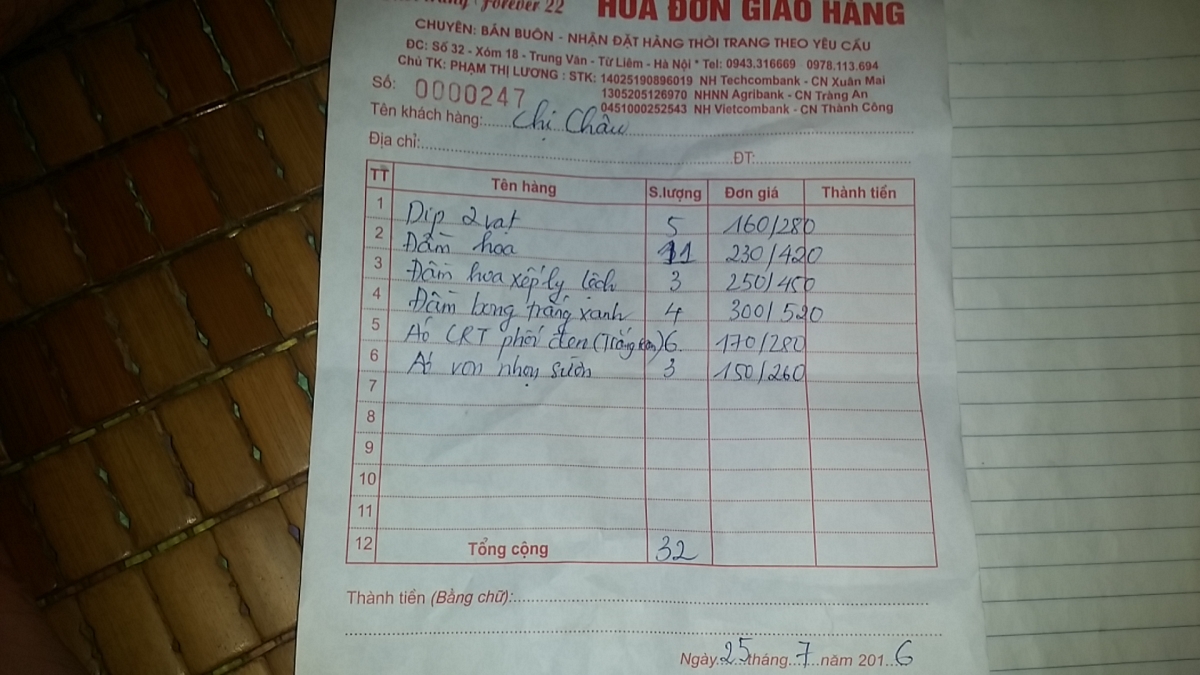 Forever 22 HÓA ĐƠN GIAO HÀNG
CHUYÊN: BÁN BUÔN - NHẬN ĐẶT HÀNG THỜI TRANG THEO YÊU CẦU
ĐC: Số 32 - Xóm 18 - Trung Văn - Từ Liêm - Hà Nội * Tel: 0943.316669 0978.113.694
Chủ TK: PHẠM THỊ LƯƠNG : STK: 14025190896019 NH Techcombank - CN Xuân Mai
1305205126970 NHNN Agribank - CN Tràng An
0451000252543 NH Vietcombank - CN Thành Công
Số: 0000247
Tên khách hàng: Chị Châu
Địa chỉ: ĐT:
TT Tên hàng S.lượng Đơn giá Thành tiền
1 Díp 2 vạt 5 160/280
2 Đầm hoa 11 230/420
3 Đầm hoa xếp ly lệch 3 250/450
4 Đầm trắng xanh 4 300/520
5 Áo CRT phối đen (Trắng 6 170/280
6 Áo von nhọn sườn 3 150/260
7
8
9
10
11
12 Tổng cộng 32
Thành tiền (Bằng chữ):
Ngày 25 tháng 7 năm 2016